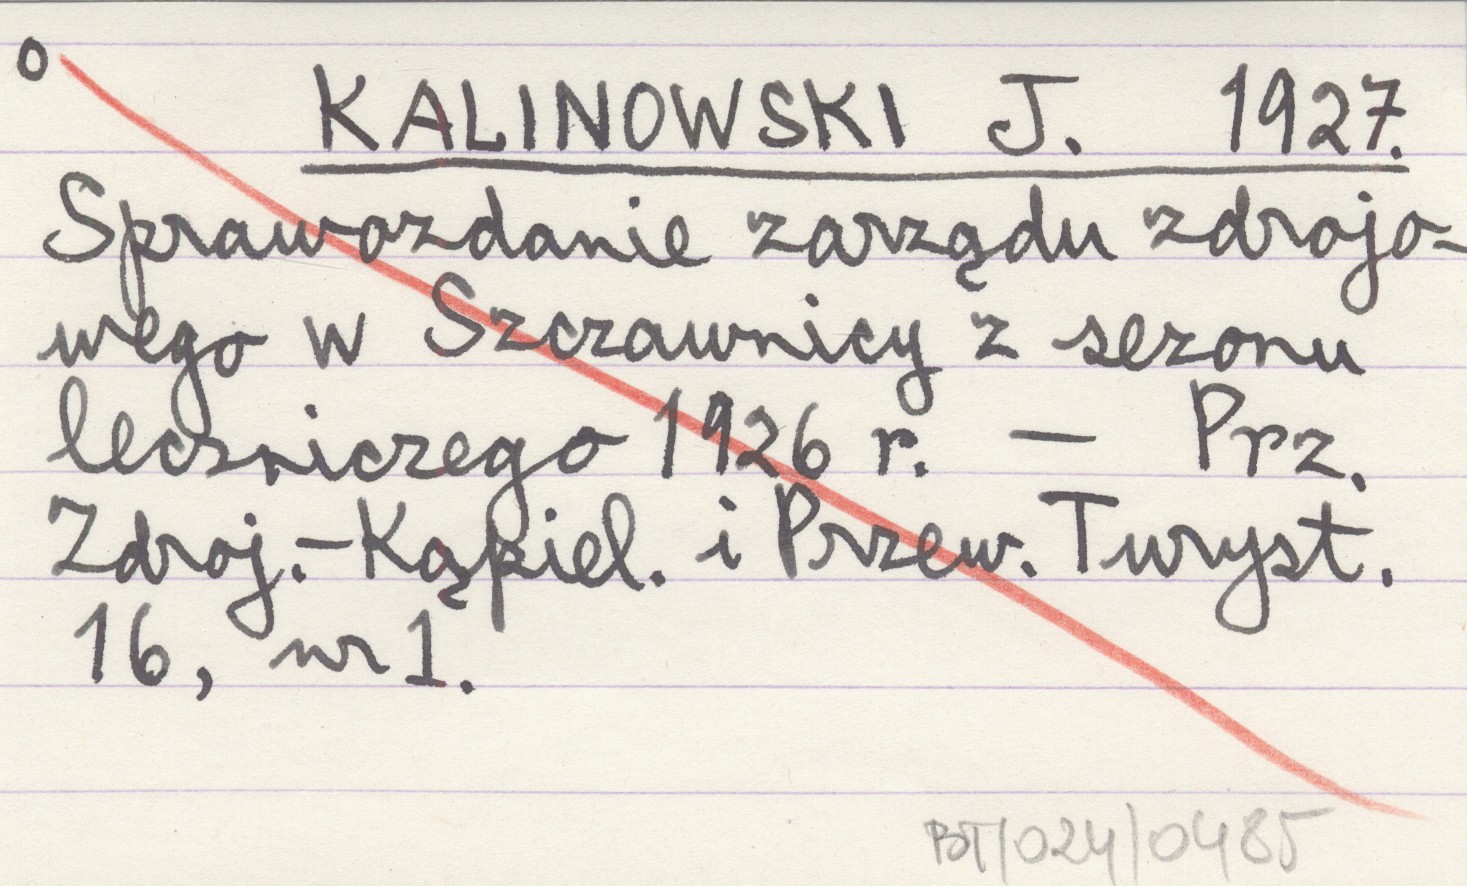 o
KALINOWSKI J. 1927.
Sprawozdanie zarządu zdrojo-
wego w Szczawnicy z sezonu
leczniczego 1926 r. — Prz.
Zdroj.-Kąpiel. i Przew. Turyst.
16, nr 1.
BT/024/0485